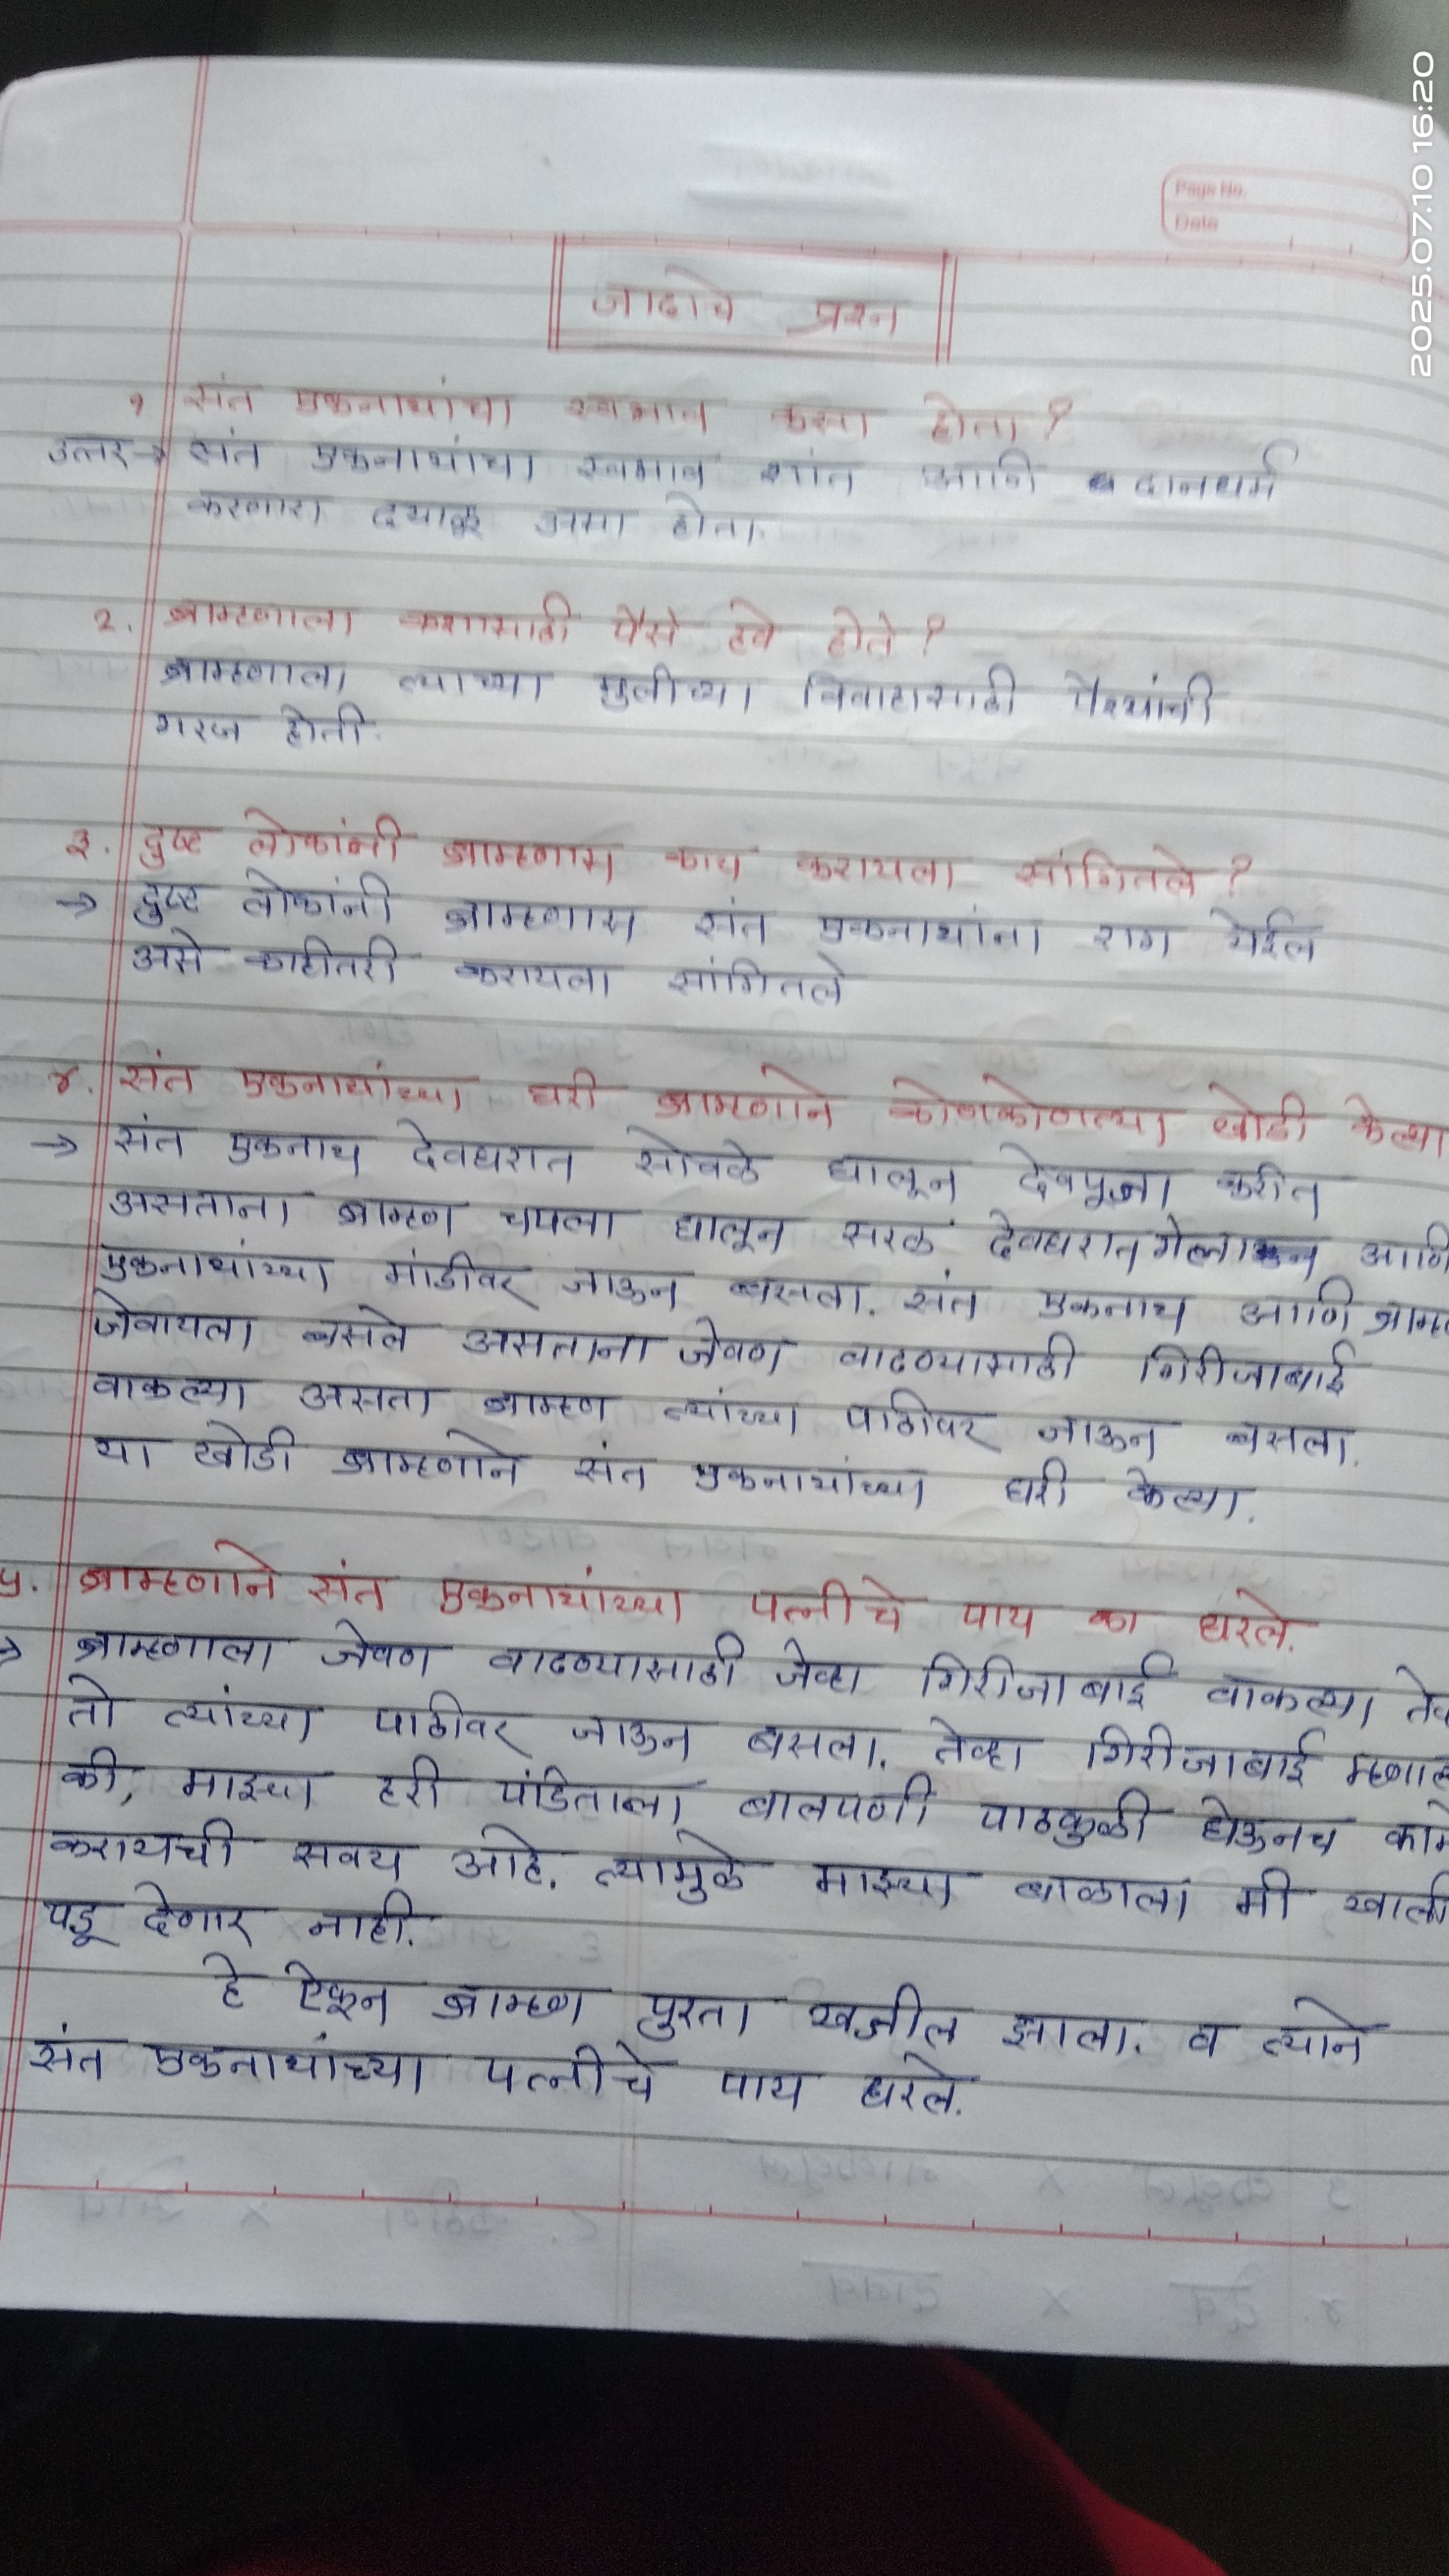 2025.07.10 16:20
Page No.
Date
जादाचे प्रश्न
१ संत एकनाथांचा स्वभाव कसा होता?
उत्तर→ संत एकनाथांचा स्वभाव शांत आणि दानधर्म
करणारा दयाळू असा होता.
२. ब्राम्हणाला कशासाठी पैसे हवे होते?
ब्राम्हणाला त्याच्या मुलीच्या विवाहासाठी पैश्यांची
गरज होती.
३. दुष्ट लोकांनी ब्राम्हणास काय करायला सांगितले?
→ दुष्ट लोकांनी ब्राम्हणास संत एकनाथांना राग येईल
असे काहीतरी करायला सांगितले
४. संत एकनाथांच्या घरी ब्राम्हणाने कोणकोणत्या खोडी केल्या
→ संत एकनाथ देवघरात सोवळे घालून देवपूजा करीत
असताना ब्राम्हण चपला घालून सरळ देवघरात गेला आणि
एकनाथांच्या मांडीवर जाऊन बसला. संत एकनाथ आणि ब्राम्ह
जेवायला बसले असताना जेवण वाढण्यासाठी गिरीजाबाई
वाकल्या असता ब्राम्हण त्यांच्या पाठीवर जाऊन बसला.
या खोडी ब्राम्हणाने संत एकनाथांच्या घरी केल्या.
५. ब्राम्हणाने संत एकनाथांच्या पत्नीचे पाय का धरले.
→ ब्राम्हणाला जेवण वाढण्यासाठी जेव्हा गिरीजाबाई वाकल्या
तो त्यांच्या पाठीवर जाऊन बसला. तेव्हा गिरीजाबाई
की, माझ्या हरी पंडिताला बालपणी पाठकुळी घेऊनच
करायची सवय आहे. त्यामुळे माझ्या बाळाला मी खाली
पडू देणार नाही.
हे ऐकून ब्राम्हण पुरता खजील झाला. व त्याने
संत एकनाथांच्या पत्नीचे पाय धरले.